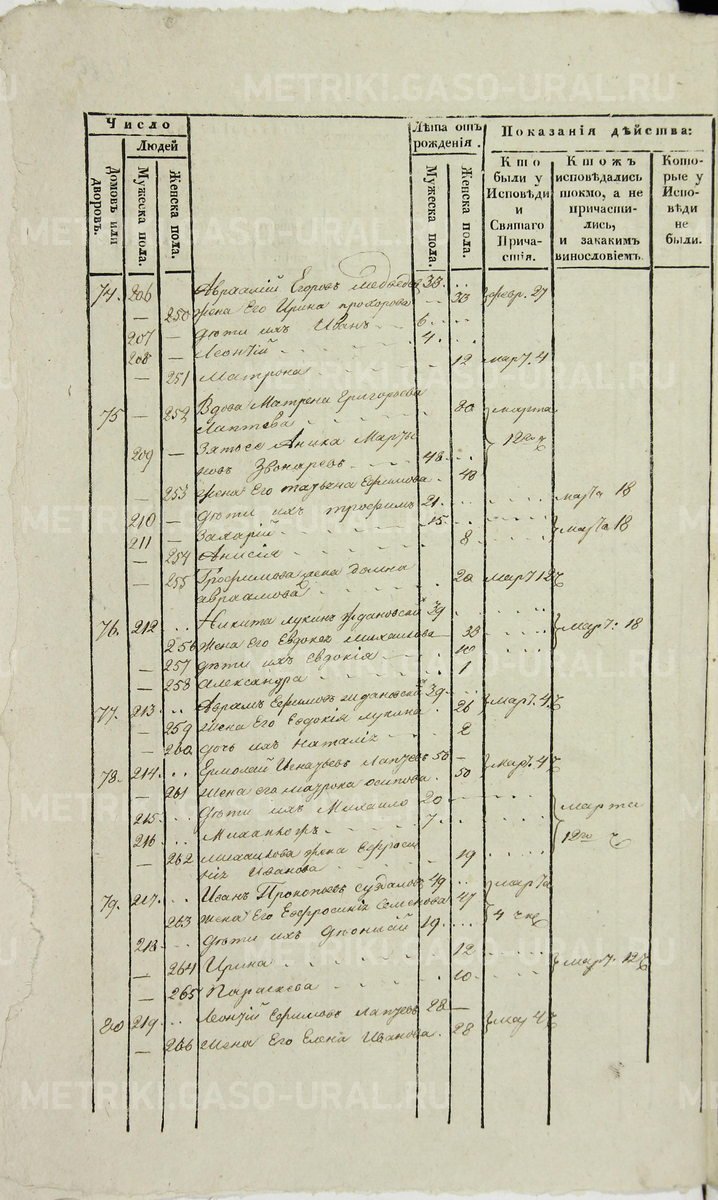 METRIKI.GASO-URAL.RU
Число
Лѣта отъ рожденія.
Показанія дѣйства:
Домовъ или дворовъ.
Людей
Мужеска пола.
Женска пола.
Мужеска пола.
Женска пола.
Кто были у Исповѣди и Святаго Причастія.
Ктожъ исповѣдались токмо, а не причастились, и закакимъ винословіемъ.
Которые у Исповѣди не были.
74. 206 Авраамій Егоровъ 33.
250 жена Его Ирина прохорова 33 февр. 27
207 дѣти ихъ Иванъ 6
208 Леонтій 4.
251 Матрона 12 март. 4
75 252 Вдова Матрена Григорьева 80 марта
Лаптева 12го
209 Зять ее Аника
новъ Звонаревъ 48
253 жена Его татьяна Ефимова 48
210 дѣти ихъ трофимъ 21. марта 18
211 Захарій 15 марта 18
254 Анисія 8
255 Трофимова жена Домна 20 март 12
авраамова
76. 212 Никита лукинъ 39
256 жена Его Евдокія Михаилова 33 март. 18
257 дѣти ихъ Евдокія 10
258 Александра 1
77. 213 Аврамъ Ефимовъ 39 март. 4
259 жена Его Евдокія лукина 26
260 дочь ихъ наталія 2
78. 214 Ермолай Игнатьевъ Лаптевъ 50 март. 4
261 жена его матрона осипова 50
215 дѣти ихъ Михаило 20 марта
216 7 12го
262 михаилова жена Ефросинія 19
Иванова
79. 217 Иванъ Прокопьевъ суздаловъ 49 марта
263 жена Его Ефросинія Семенова 47 4
218 дѣти ихъ Діонисій 19
264 Ирина 12 март. 12
265 Параскева 10
80 219 Леонтій Ефимовъ Лаптевъ 28 мар 4
266 жена Его Елена Иванова 28
METRIKI.GASO-URAL.RU